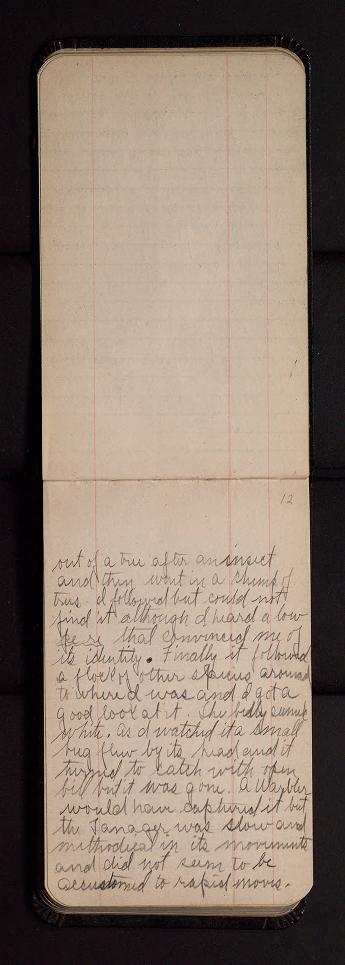 12
out of a tree after an insect
and then went in a clump of
trees. I followed but could not
find it although I heard a low
that convinced me of
its identity. Finally it followed
a flock of other species around
to where I was and I got a
good look at it. The belly seemed
white. As I watched it a small
bug flew by its head and it
turned to catch with open
bill but it was gone. A Warbler
would have captured it but
the Tanager was slow and
methodical in its movements
and did not seem to be
accustomed to rapid moves.